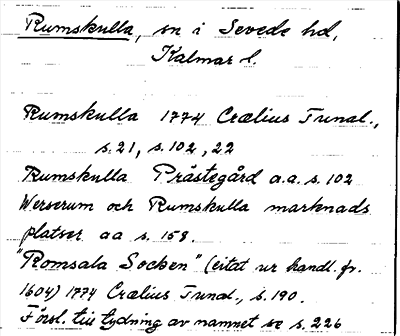 Rumskulla, sn i Sevede hd,
Kalmar l.
Rumskulla 1774 Crælius Tunal.,
s. 21, s. 102, 22
Rumskulla Prästegård a.a. s. 102
Werserum och Rumskulla marknads
platser aa s. 158.
"Romsala Socken" (citat ur handl. fr.
1604) 1774 Crælius Tunal., s. 190.
Försl. till tydning av namnet se s. 226